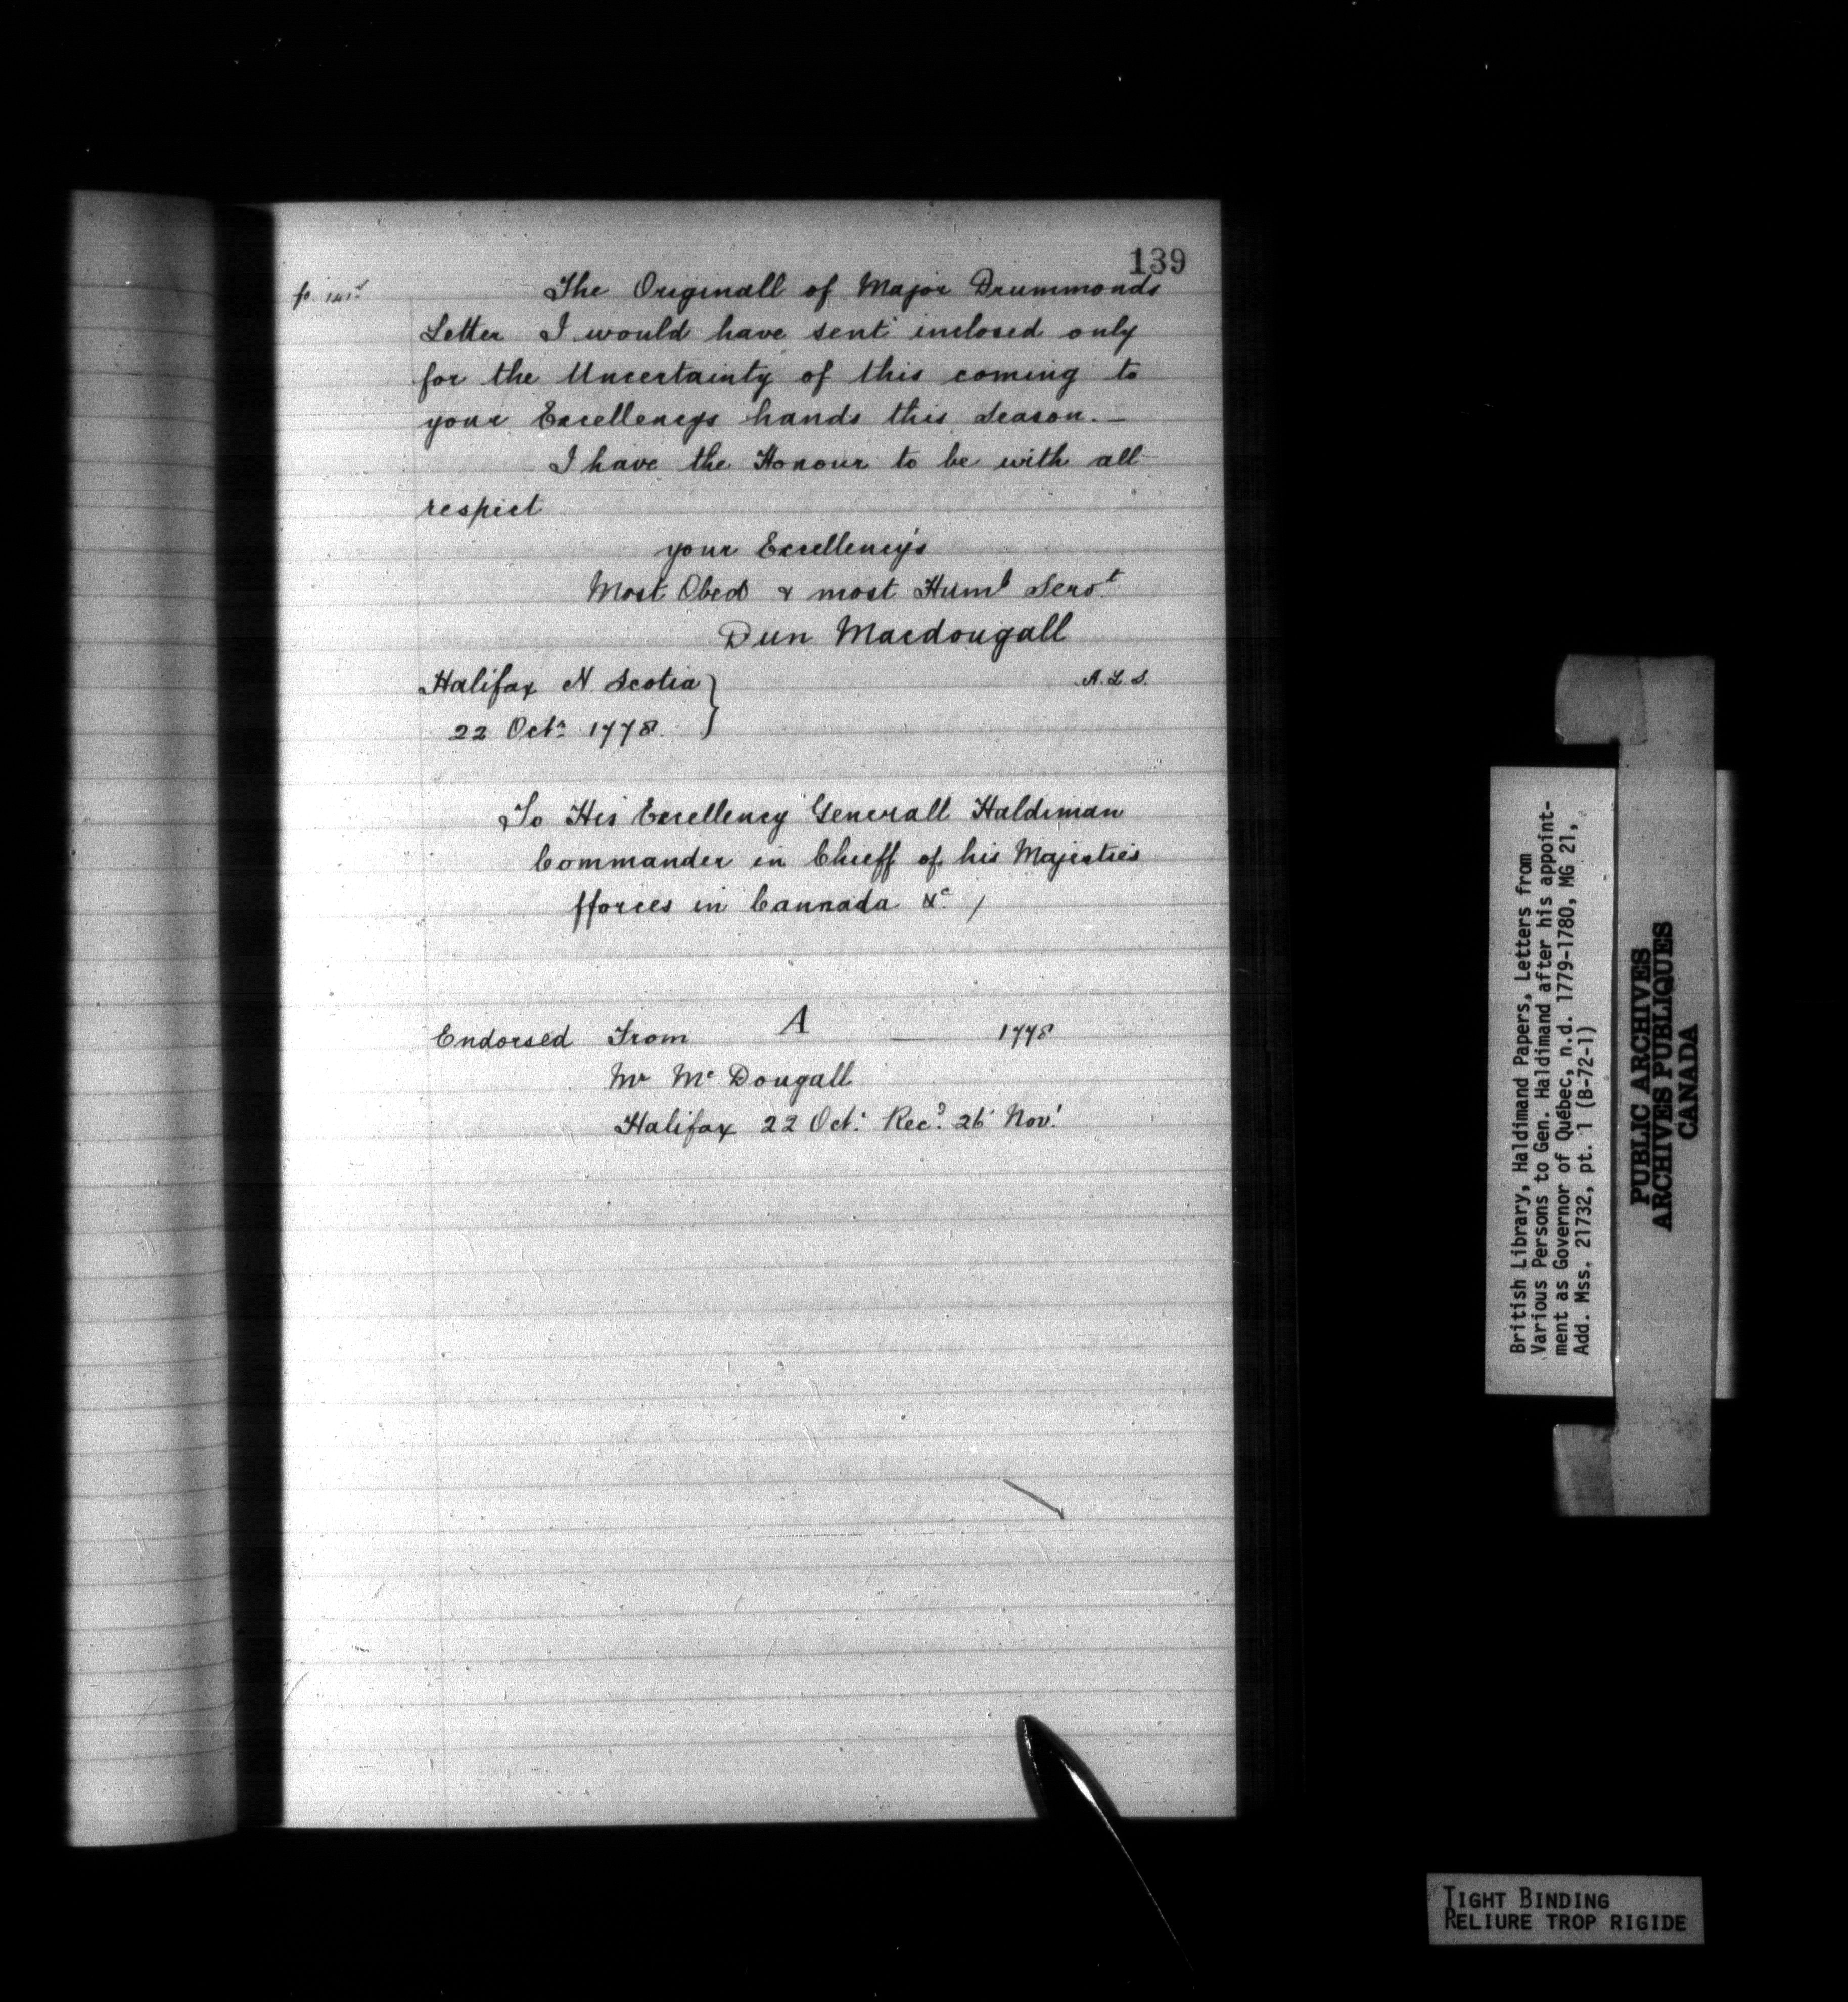 139
The Originall of Major Drummonds
Letter I would have sent inclosed only
for the Uncertainty of this coming to
your Excellencys hands this Season. —
I have the Honour to be with all
respect
your Excellency's
Most Obed & most Humb Servt
Dun Macdougall
Halifax N. Scotia
A. L. S.
22 Octr 1778.
To His Excellency Generall Haldiman
Commander in Chieff of his Majestie's
fforces in Cannada &c /
Endorsed From A — 1778
Mr Mc Dougall
Halifax 22 Octr Recd 26 Novr
British Library, Haldimand Papers, Letters from
Various Persons to Gen. Haldimand after his appoint-
ment as Governor of Québec, n.d. 1779-1780, MG 21,
Add. Mss. 21732, pt. 1 (B-72-1)
PUBLIC ARCHIVES
ARCHIVES PUBLIQUES
CANADA
TIGHT BINDING
RELIURE TROP RIGIDE